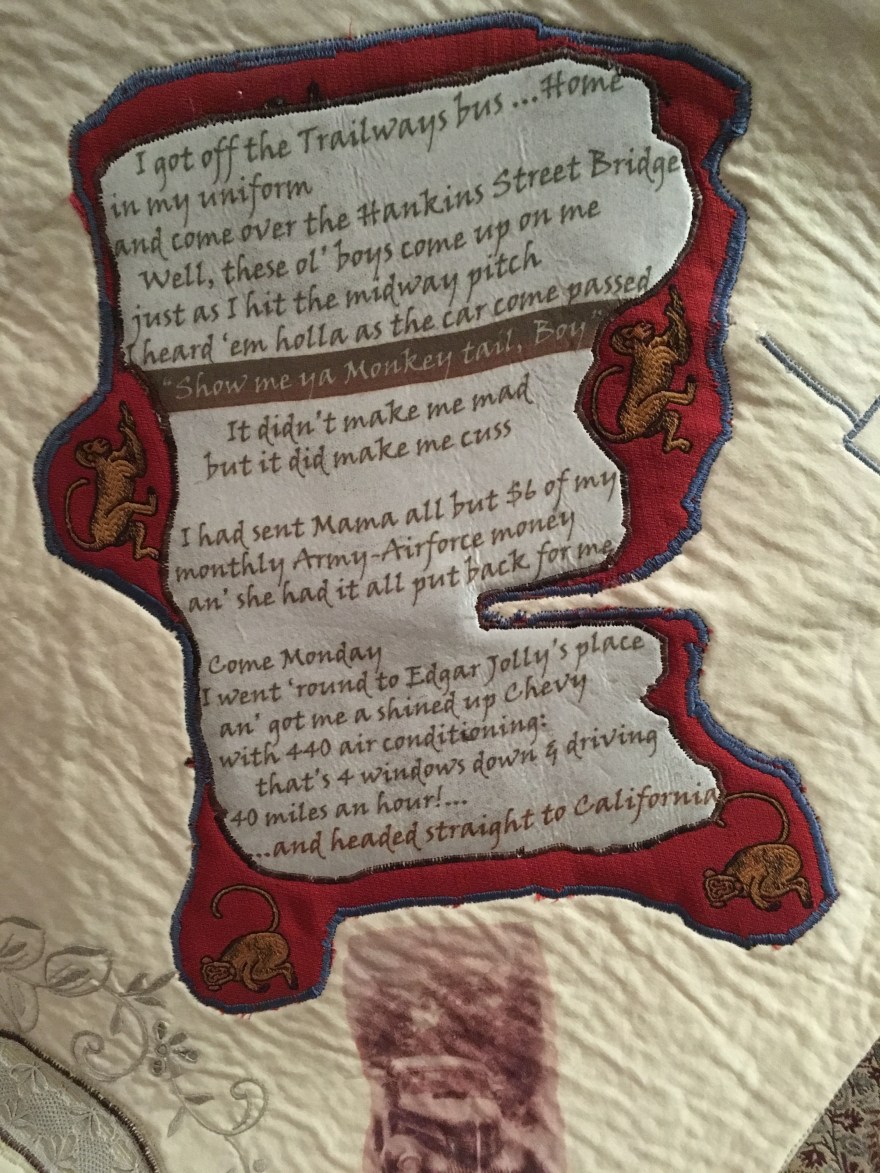 I got off the Trailways bus ...Home
in my uniform
and come over the Hankins Street Bridge
Well, these ol' boys come up on me
just as I hit the midway pitch
I heard 'em holla as the car come passed
"Show me ya Monkey tail, Boy"
It didn't make me mad
but it did make me cuss
I had sent Mama all but $6 of my
monthly Army-Airforce money
an' she had it all put back for me
Come Monday
I went 'round to Edgar Jolly's place
an' got me a shined up Chevy
with 440 air conditioning:
that's 4 windows down & driving
40 miles an hour!...
...and headed straight to California